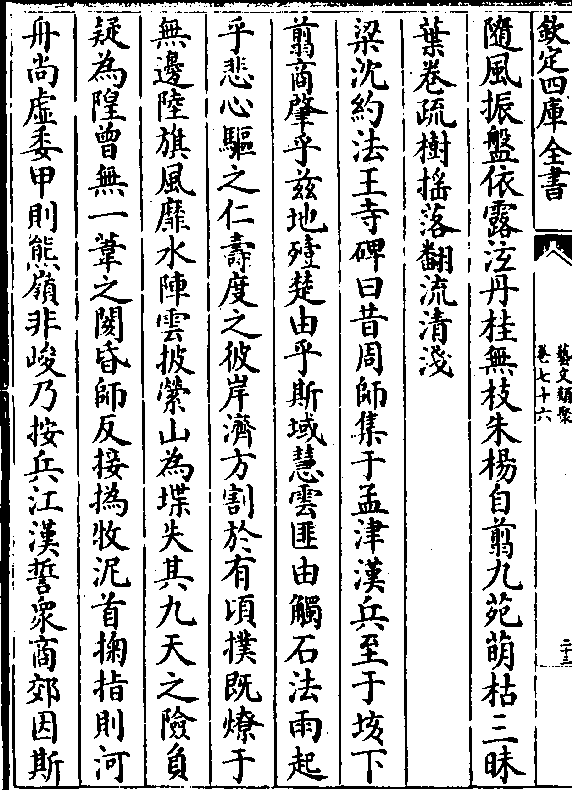 欽定四庫全書
藝文類聚
卷七十六
二十三
隨風振盤依露泫丹桂無枝朱楊自翦九苑萌枯三昧
葉卷疏樹揺落翻流清淺
梁沈約法王寺碑曰昔周師集于孟津漢兵至于垓下
翦商肇乎兹地殪楚由乎斯域慧雲匪由觸石法雨起
乎悲心驅之仁壽度之彼岸濟方割於有頃撲既燎于
無邊陸旗風靡水陣雲披縈山為堞失其九天之險負
疑為隍曾無一葦之闊昏師反接撝牧泥首掬指則河
舟尚虛委甲則熊嶺非峻乃按兵江漢誓衆商郊因斯